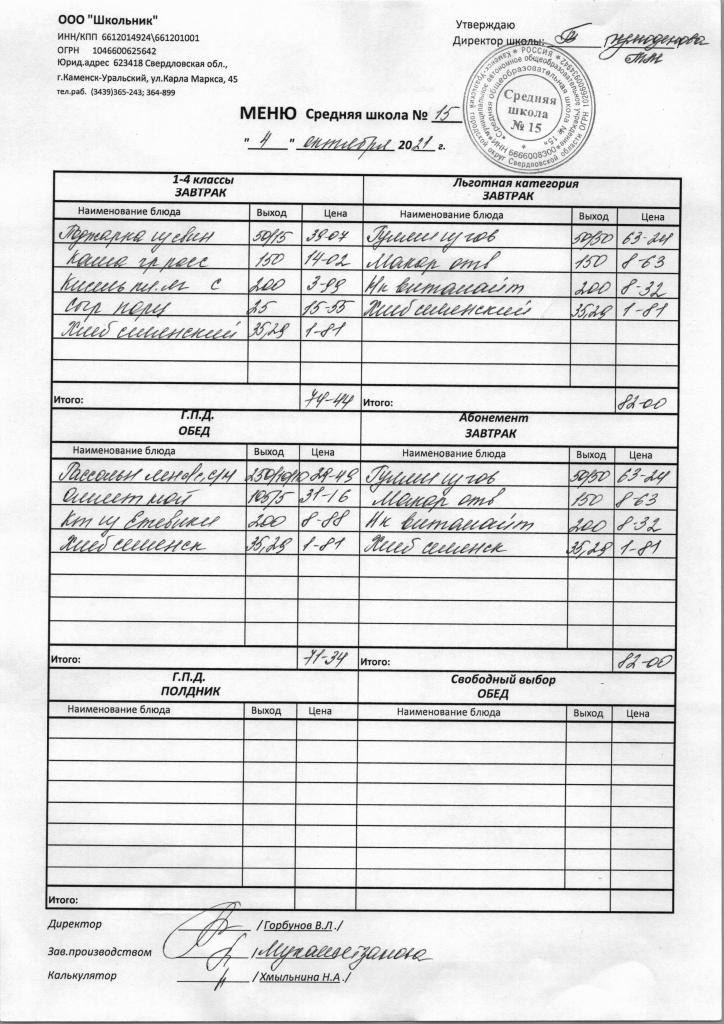 ООО "Школьник"
ИНН/КПП 6612014924\661201001
ОГРН 1046600625642
Юрид.адрес 623418 Свердловская обл.,
г.Каменск-Уральский, ул.Карла Маркса, 45
тел.раб. (3439)365-243; 364-899
Утверждаю
Директор школы:
Средняя
школа
№ 15
МЕНЮ Средняя школа № 15
" 4 " октября 2021 г.
1-4 классы
ЗАВТРАК
Наименование блюда Выход Цена
Поджарка из свин 50/15 39-07
Каша гр расс 150 14-02
Кисель пл.яг с 200 3-99
Сыр порц 25 15-55
Хлеб смменский 35,29 1-81
Итого: 74-44
Льготная категория
ЗАВТРАК
Наименование блюда Выход Цена
Гуляш из гов 50/50 63-24
Макар отв 150 8-63
Нк витолайт 200 8-32
Хлеб смменский 35,29 1-81
Итого: 82-00
Г.П.Д.
ОБЕД
Наименование блюда Выход Цена
Рассольн лен 250/10/10 29-49
Омлет 105/5 31-16
Кт из Ежевики 200 8-88
Хлеб 35,29 1-81
Итого: 71-34
Абонемент
ЗАВТРАК
Наименование блюда Выход Цена
Гуляш из гов 50/50 63-24
Макар отв 150 8-63
Нк витолайт 200 8-32
Хлеб 35,29 1-81
Итого: 82-00
Г.П.Д.
ПОЛДНИК
Наименование блюда Выход Цена
Итого:
Свободный выбор
ОБЕД
Наименование блюда Выход Цена
Директор / Горбунов В.Л ./
Зав.производством / Мухаметзанова
Калькулятор / Хмыльнина Н.А ./